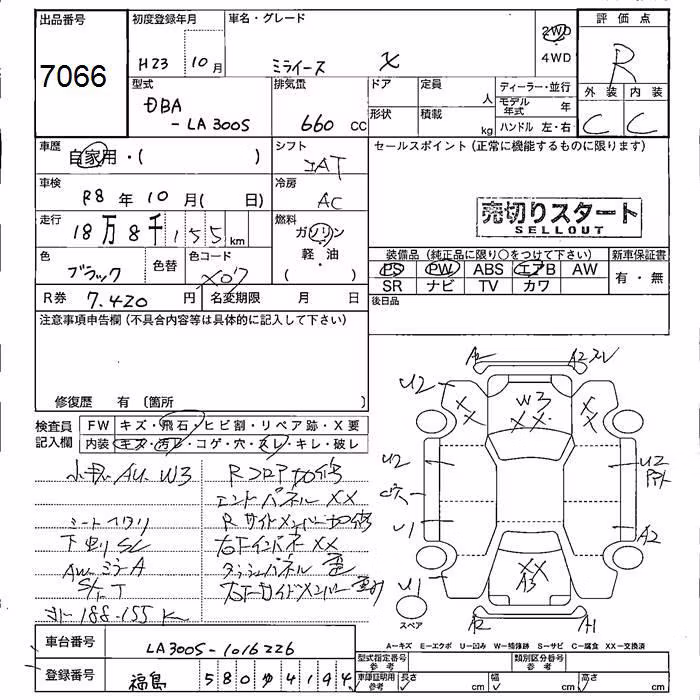 出品番号 初度登録年月 車名・グレード 評価点
7066 H23 10月 ミライース X 2WD 4WD R
型式 排気量 ドア 定員 人 ディーラー・並行 外装 内装
DBA -LA300S 660 cc 形状 積載 kg モデル年式 年 C C
ハンドル 左・右
車歴 自家用・( ) シフト IAT セールスポイント(正常に機能するものに限ります)
車検 R8年10月( 日) 冷房 AC
売切りスタート
SELLOUT
走行 18万8千155km 燃料 ガソリン・軽・油 ( )
装備品(純正品に限り○をつけて下さい) 新車保証書
色 ブラック 色替 色コード X07
PS PW ABS エアB AW 有・無
SR ナビ TV カワ
R券 7.420円 名変期限 月 日 後日品
注意事項申告欄(不具合内容等は具体的に記入して下さい)
修復歴 有(箇所 )
検査員記入欄 FW キズ・飛石・ヒビ割・リペア跡・X要
内装 キズ・汚レ・コゲ・穴・スレ・キレ・破レ
小キズ AU W3 Rフロア加修
エンドパネル XX
Rサイドメンバー加修
下回りSC
AWミラーA
188-155K
A2 A2
U2 W3 XX U2
XX XX
U2 U2
U1 A2
XX
A3
U1
A1
スペア
A-キズ E-エクボ U-凹み W-補修跡 S-サビ C-腐食 XX-交換済
車台番号 LA300S-1016226
型式指定番号 参考 類別区分番号 参考
登録番号 福島 580 ゆ 4194
車庫証明用 参考 長さ cm 幅 cm 高さ cm